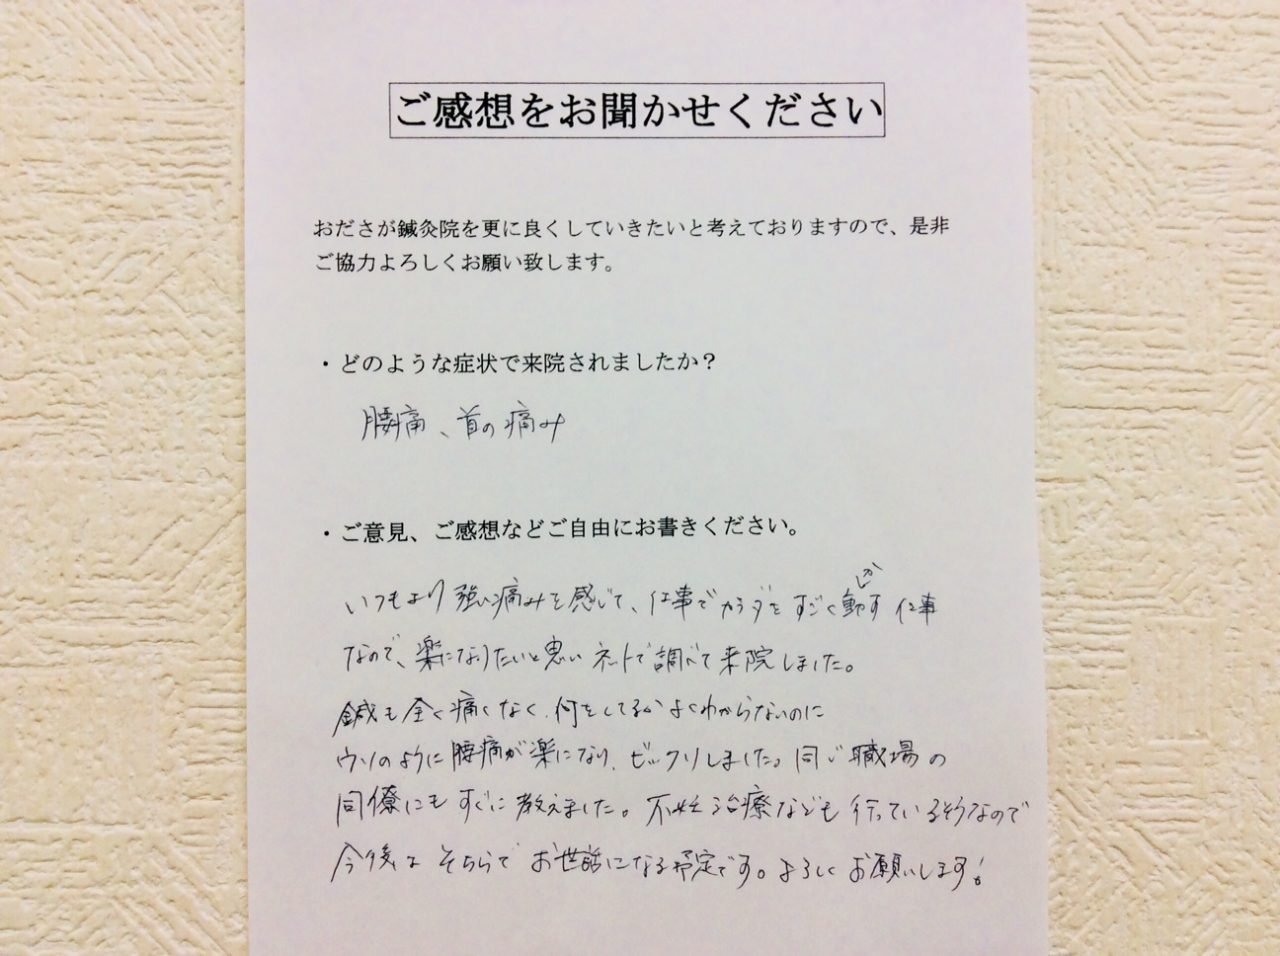 ご感想をお聞かせください
おださが鍼灸院を更に良くしていきたいと考えておりますので、是非
ご協力よろしくお願い致します。
・どのような症状で来院されましたか？
腰痛、首の痛み
・ご意見、ご感想などご自由にお書きください。
いつもより強い痛みを感じて、仕事でカラダをすごく動かす仕事
なので、楽になりたいと思いネットで調べて来院しました。
鍼も全く痛くなく、何をしてるかよくわからないのに
ウソのように腰痛が楽になり、ビックリしました。同じ職場の
同僚にもすぐに教えました。不妊治療なども行っているそうなので
今後はそちらでお世話になる予定です。よろしくお願いします!